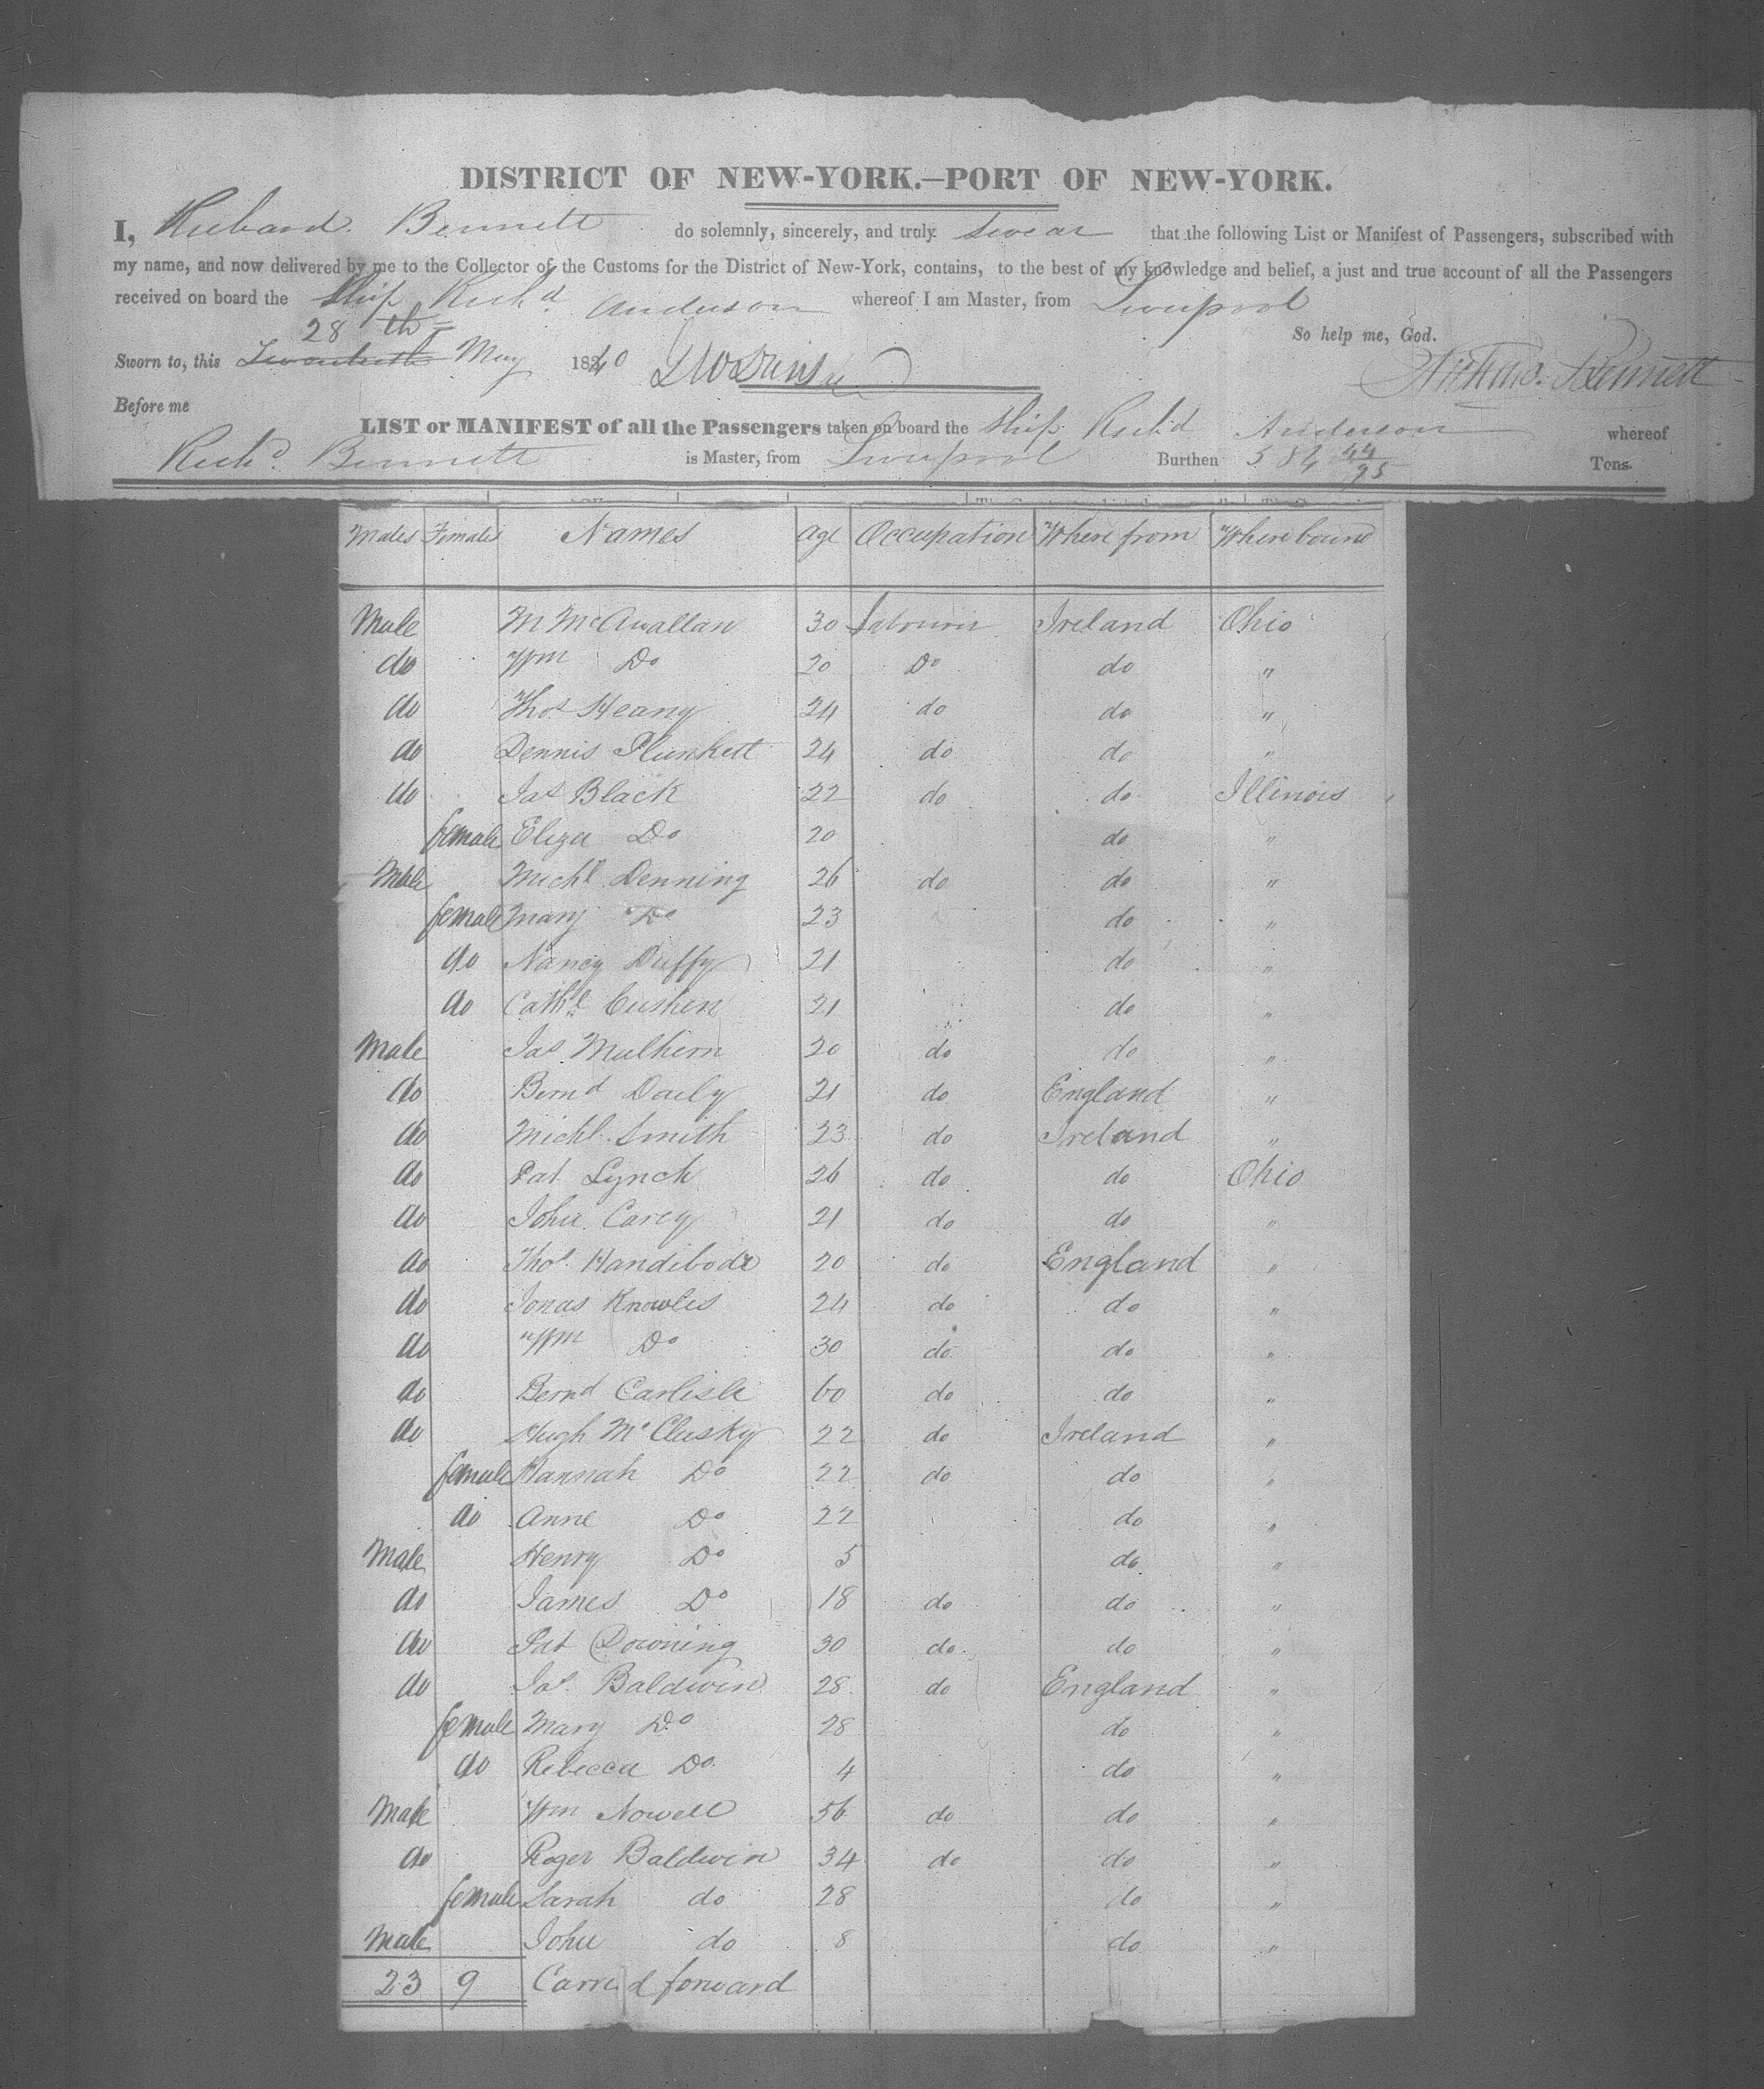 DISTRICT OF NEW-YORK.—PORT OF NEW-YORK.
I, Richard Bennett do solemnly, sincerely, and truly swear that the following List or Manifest of Passengers, subscribed with
my name, and now delivered by me to the Collector of the Customs for the District of New-York, contains, to the best of my knowledge and belief, a just and true account of all the Passengers
received on board the Ship Rich'd Anderson whereof I am Master, from Liverpool
So help me, God.
28th
Sworn to, this Twentieth May 1840 Richd. Bennett
Before me
LIST or MANIFEST of all the Passengers taken on board the Ship Rich'd Anderson whereof
Richd. Bennett is Master, from Liverpool Burthen 584 44/95 Tons.
Males Females Names Age Occupation Where from Where bound
Male M McAwallan 30 Labourer Ireland Ohio
do Wm Do 20 Do do "
do Thos Heany 24 do do "
do Dennis Plunkett 24 do do "
do Jas Black 22 do do Illinois
female Eliza Do 20 do "
Male Michl Denning 26 do do "
female Mary Do 23 do "
do Nancy Duffy 21 do "
do Cathe Cushen 21 do "
Male Jas Mulhern 20 do do "
do Bernd Daily 21 do England "
do Michl Smith 23 do Ireland "
do Pat Lynch 26 do do Ohio
do John Carey 21 do do "
do Thos Handibode 20 do England "
do Jonas Knowles 24 do do "
do Wm Do 30 do do "
do Bernd Carlisle 60 do do "
do Hugh McClusky 22 do Ireland "
female Hannah Do 22 do do "
do Anne Do 22 do "
Male Henry Do 5 do "
do James Do 18 do do "
do Pat Downing 30 do do "
do Jas. Baldwin 28 do England "
female Mary Do 28 do "
do Rebecca Do 4 do "
Male Wm Nowell 56 do do "
do Roger Baldwin 34 do do "
female Sarah do 28 do "
Male John do 8 do "
23 9 Carried forward